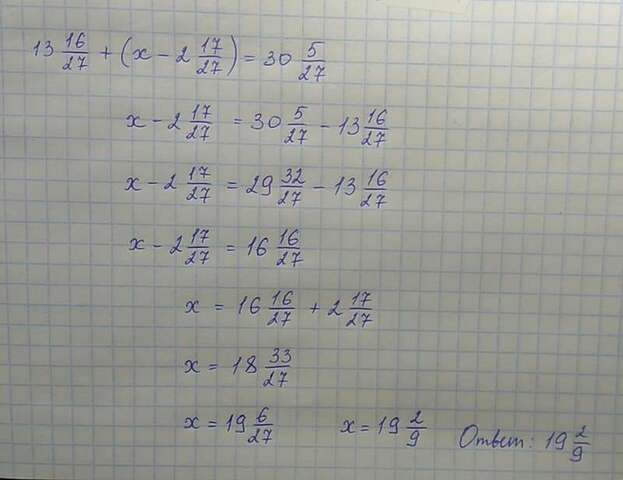 13 16/27 + (x − 2 17/27) = 30 5/27
x − 2 17/27 = 30 5/27 − 13 16/27
x − 2 17/27 = 29 32/27 − 13 16/27
x − 2 17/27 = 16 16/27
x = 16 16/27 + 2 17/27
x = 18 33/27
x = 19 6/27 x = 19 2/9 Ответ: 19 2/9